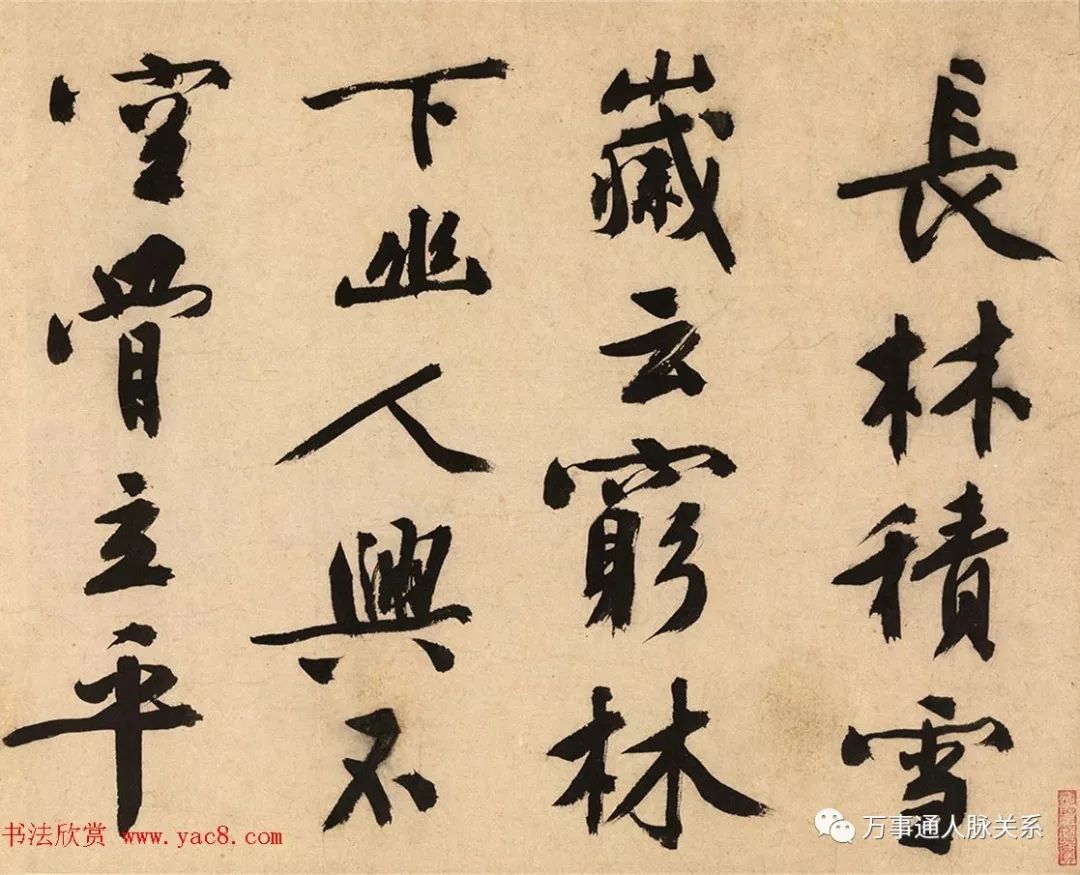 長林積雪
嵗云窮林
下幽人興不
空骨立平
书法欣赏 www.yac8.com
万事通人脉关系